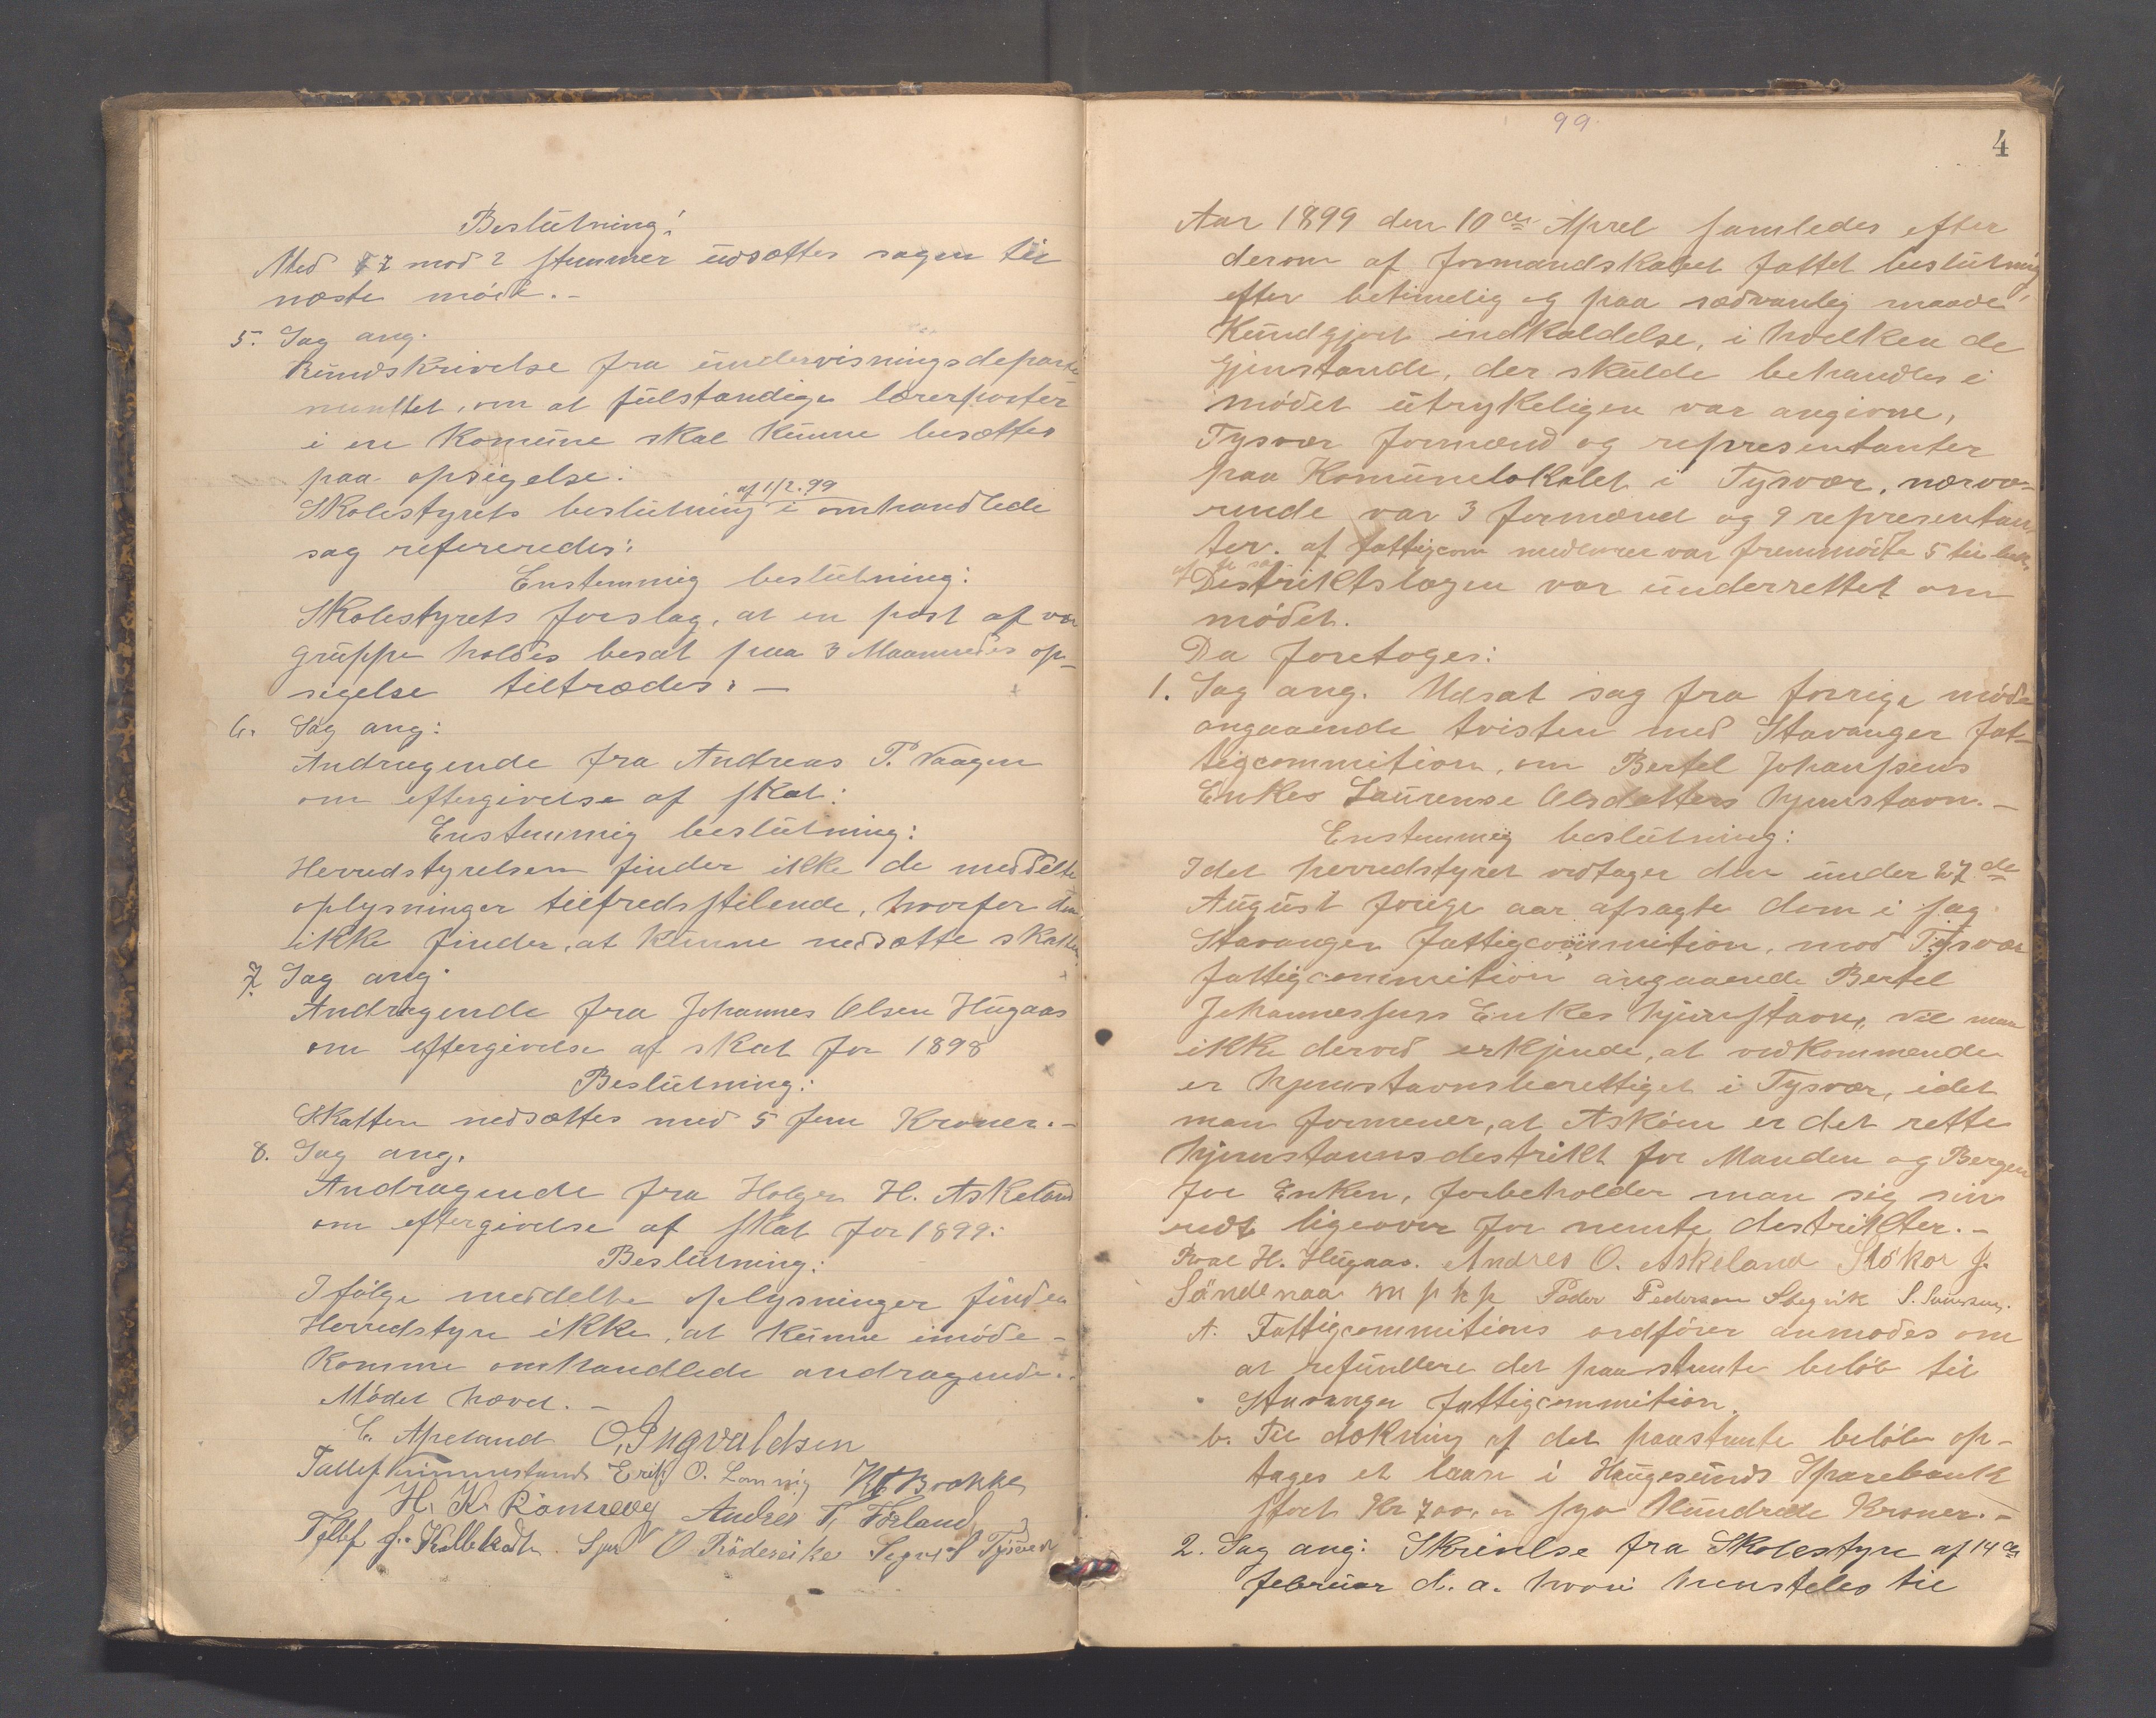 Beslutning:
Med 7 mod 2 stemmer udsættes sagen til
næste møde.-
5. Sag ang.
Rundskrivelse fra undervisningsdeparte-
mentet, om at fulstandige lærerposter
i en Komune skal kunne besættes
paa opsigelse:
af 1/2.99
Skolestyrets beslutning i omhandlede
sag refereredes:
Enstemmig beslutning:
Skolestyrets forslag, at en post af vor
gruppe holdes besat paa 3 Maaneders op-
sigelse tiltrædes. -
6. Sag ang:
Andragende fra Andreas P. Vaagen
om eftergivelse af skat:
Enstemmig beslutning:
Herredstyrelsen finder ikke de meddelte
oplysninger tilfredsstilende, hvorfor den
ikke finder, at kunne nedsætte skatten.
7. Sag ang.
Andragende fra Johannes Olsen Hugaas
om eftergivelse af skat for 1898
Beslutning:
Skatten nedsættes med 5 fem Kroner.-
8. Sag ang.
Andragende fra Holger H. Askeland
om eftergivelse af skat for 1899:
Beslutning:
Ifølge meddelte oplysninger finder
Herredstyre ikke, at kunne imøde-
komme omhandlede andragende.
Mødet hævet. -
C. Apeland O. Ingvaldsen
Tallef Erik O. K Brakke
H. K. Andres T. Førland
Tollef J. O Rödseike S Tysver
99
4
Aar 1899 den 10de Aprel samledes efter
derom af formandskabet fattet beslutning,
efter betimelig og paa sædvanlig maade
Kundgjort indkaldelse, i hvelken de
Gjenstande, der skulde behandles i
mødet utrykeligen var angivne,
Tysvær formænd og representanter
paa Komunelokalet i Tysvær, nærvæ-
rende var 3 formænd og 9 representan-
ter. af fattigcom medlemer var fremmødte 5 til
Destriktslægen var underrettet om
mødet.
Da foretoges:
1. Sag ang. Udsat sag fra forrige møde
angaaende tvisten med Stavanger fat-
tigcommition, om Bertel Johansens
Enkes Laurense Olsdatters hjemstavn.-
Enstemmig beslutning:
Idet herredstyret vedtager den under 27de
August forige aar afsagte dom i sag
Stavanger fattigcommition, mod Tysvær
fattigcommition angaaende Bertel
Johannessens Enkes hjemstavn, vil man
ikke derved erkjende, at vedkommende
er hjemstavnsberettiget i Tysvær, idet
man formener, at Askøen er det rette
hjemstavnsdestrikt for Manden og Bergen
for Enken, forbeholder man sig sin
redt ligeover for nemte destrikter.-
H. Hugaas. Andres O. Askeland Stökor J.
Söndenaa m p k p Peder Pederson
A. Fattigcommitions ordfører anmodes om
at refundere det paastemte beløb til
Stavanger fattigcommition.
b. Til dækning af det paastemte beløb op-
tages et laan i Haugesunds Sparebank
stort Kr 700, syv Hundrede Kroner.-
2. Sag ang: Skrivelse fra Skolestyre af 14de
februar d. a. hvori henstiles til